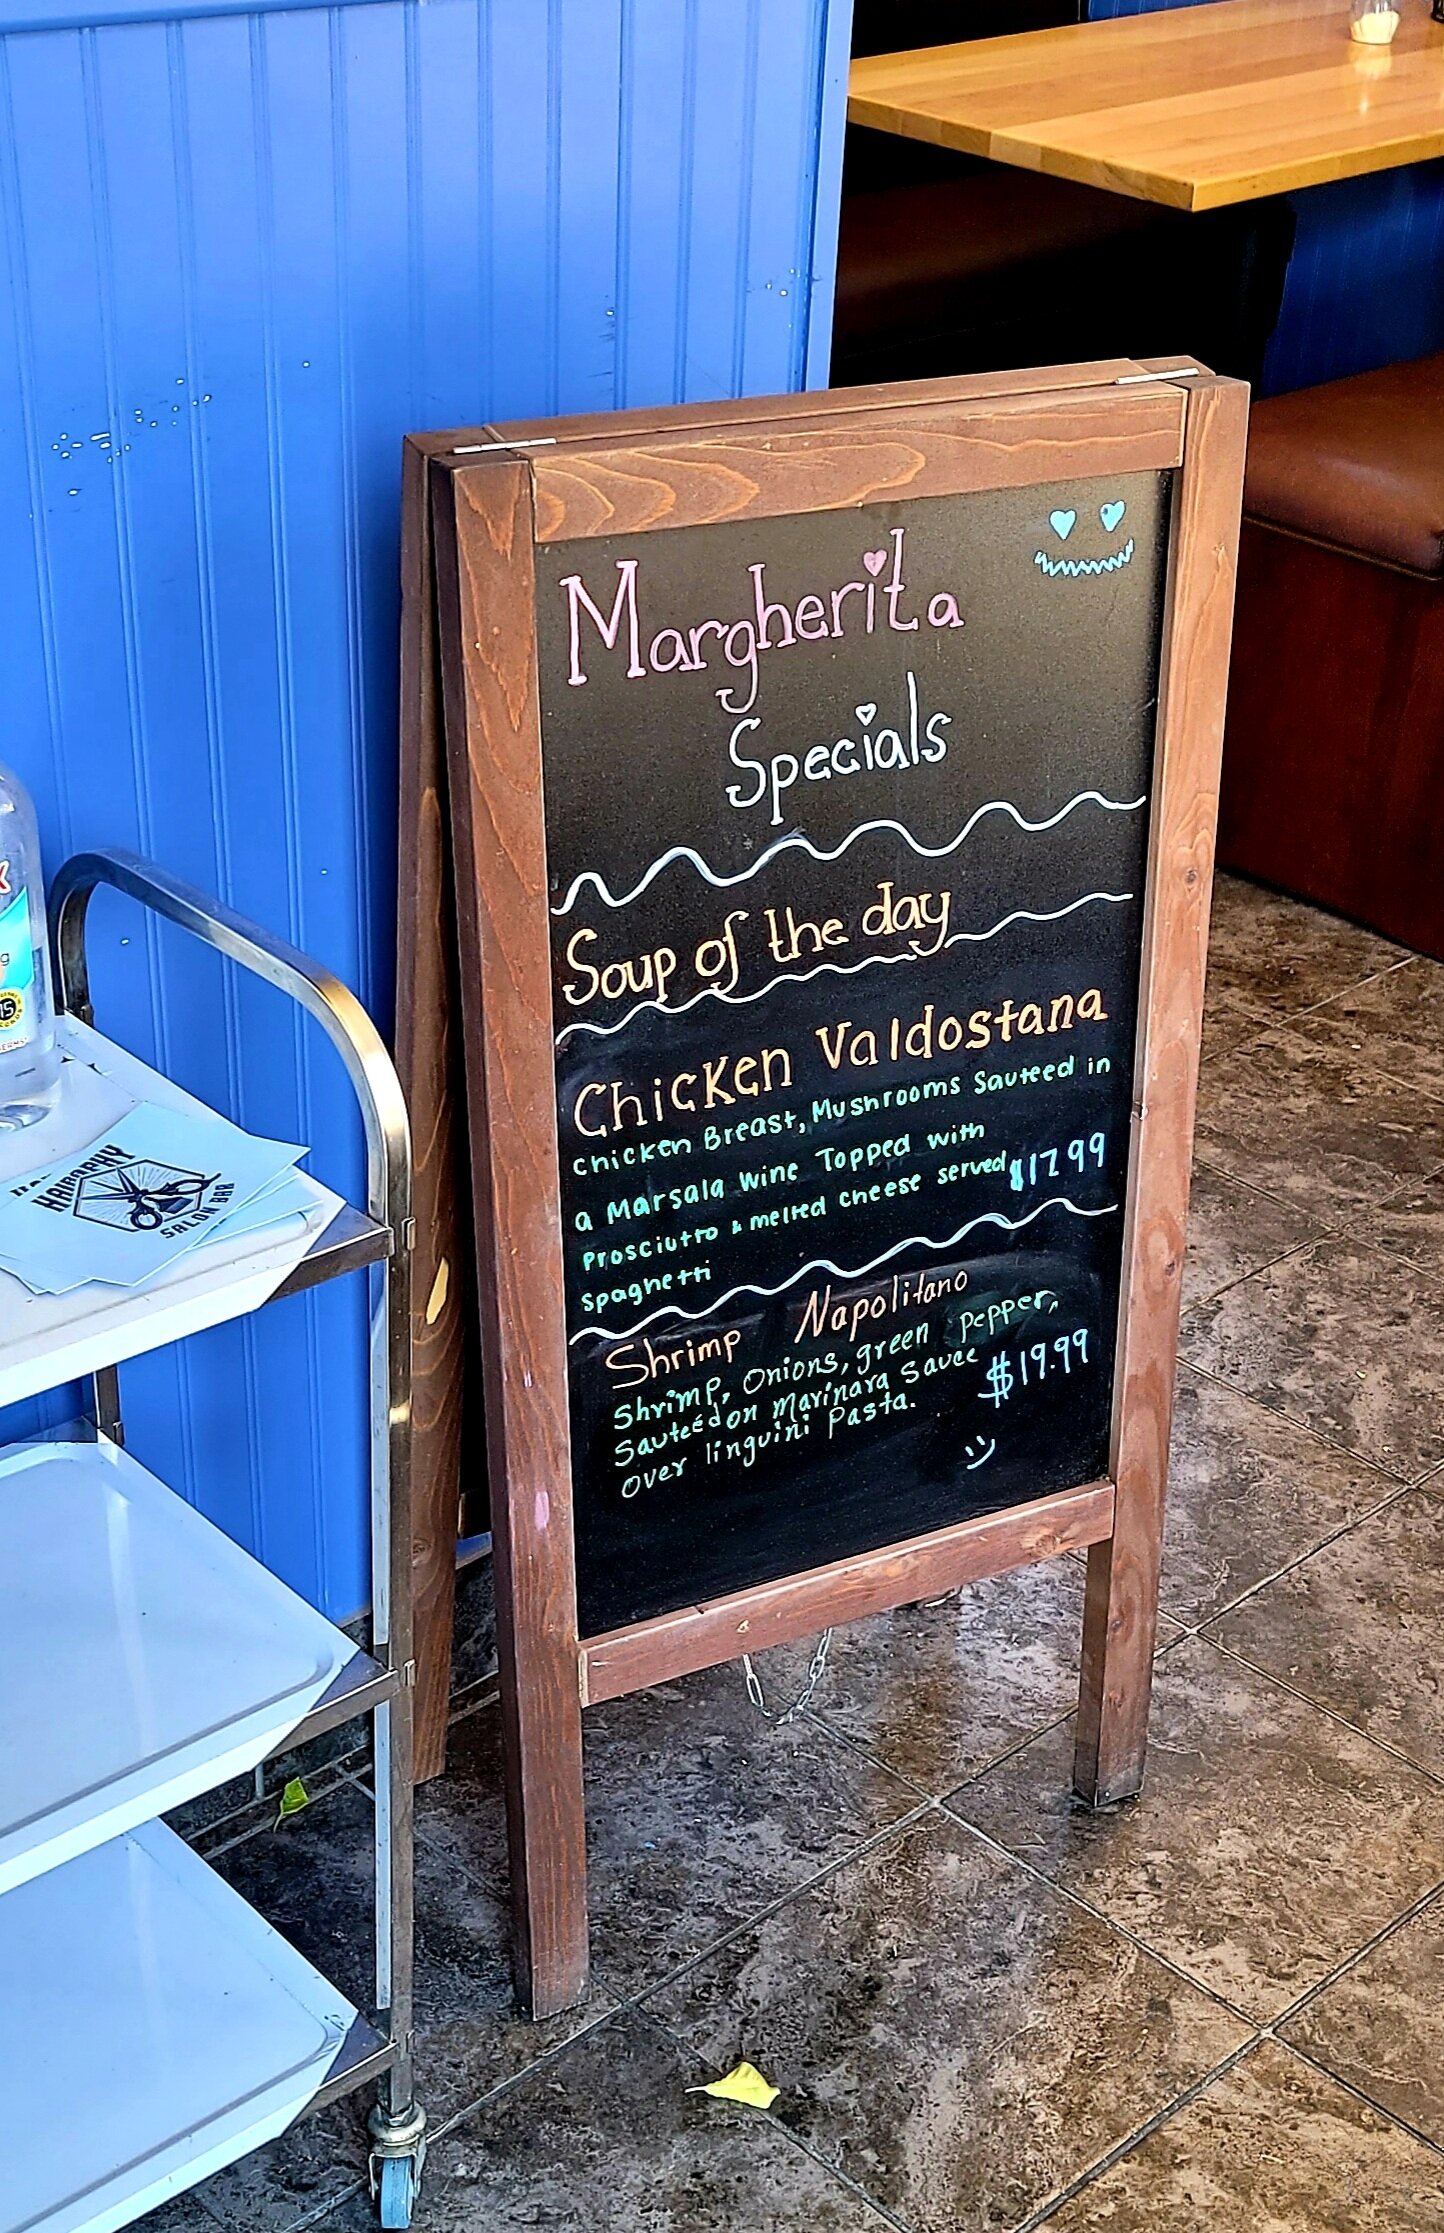 Margherita
Specials
Soup of the day
Chicken Valdostana
Chicken Breast, Mushrooms Sauteed in
a Marsala Wine Topped with
Prosciutto & melted cheese served
spaghetti
$17.99
Shrimp Napolitano
Shrimp, Onions, green pepper,
Sauteéd on marinara sauce
over linguini Pasta.
$19.99
HAIRAPHY
SALON BAR
15